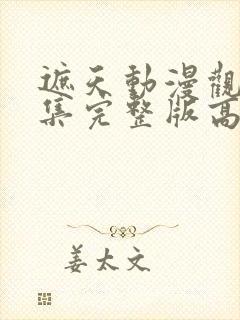 遮天動漫觀
集完整版高
姜太文